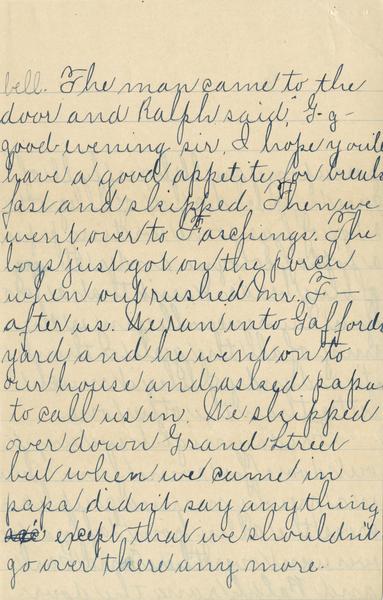 bell. The man came to the
door and Ralph said, "G-g-
good evening sir, I hope you'll
have a good appetite for break
fast and skipped. Then we
went over to Faschings. The
boys just got on the porch
when out rushed Mr. F—
after us. We ran into Gaffords
yard and he went on to
our house and asked papa
to call us in. We skipped
over down Grand Street
but when we came in
papa didn't say anything
except that we shouldn't
go over there any more.